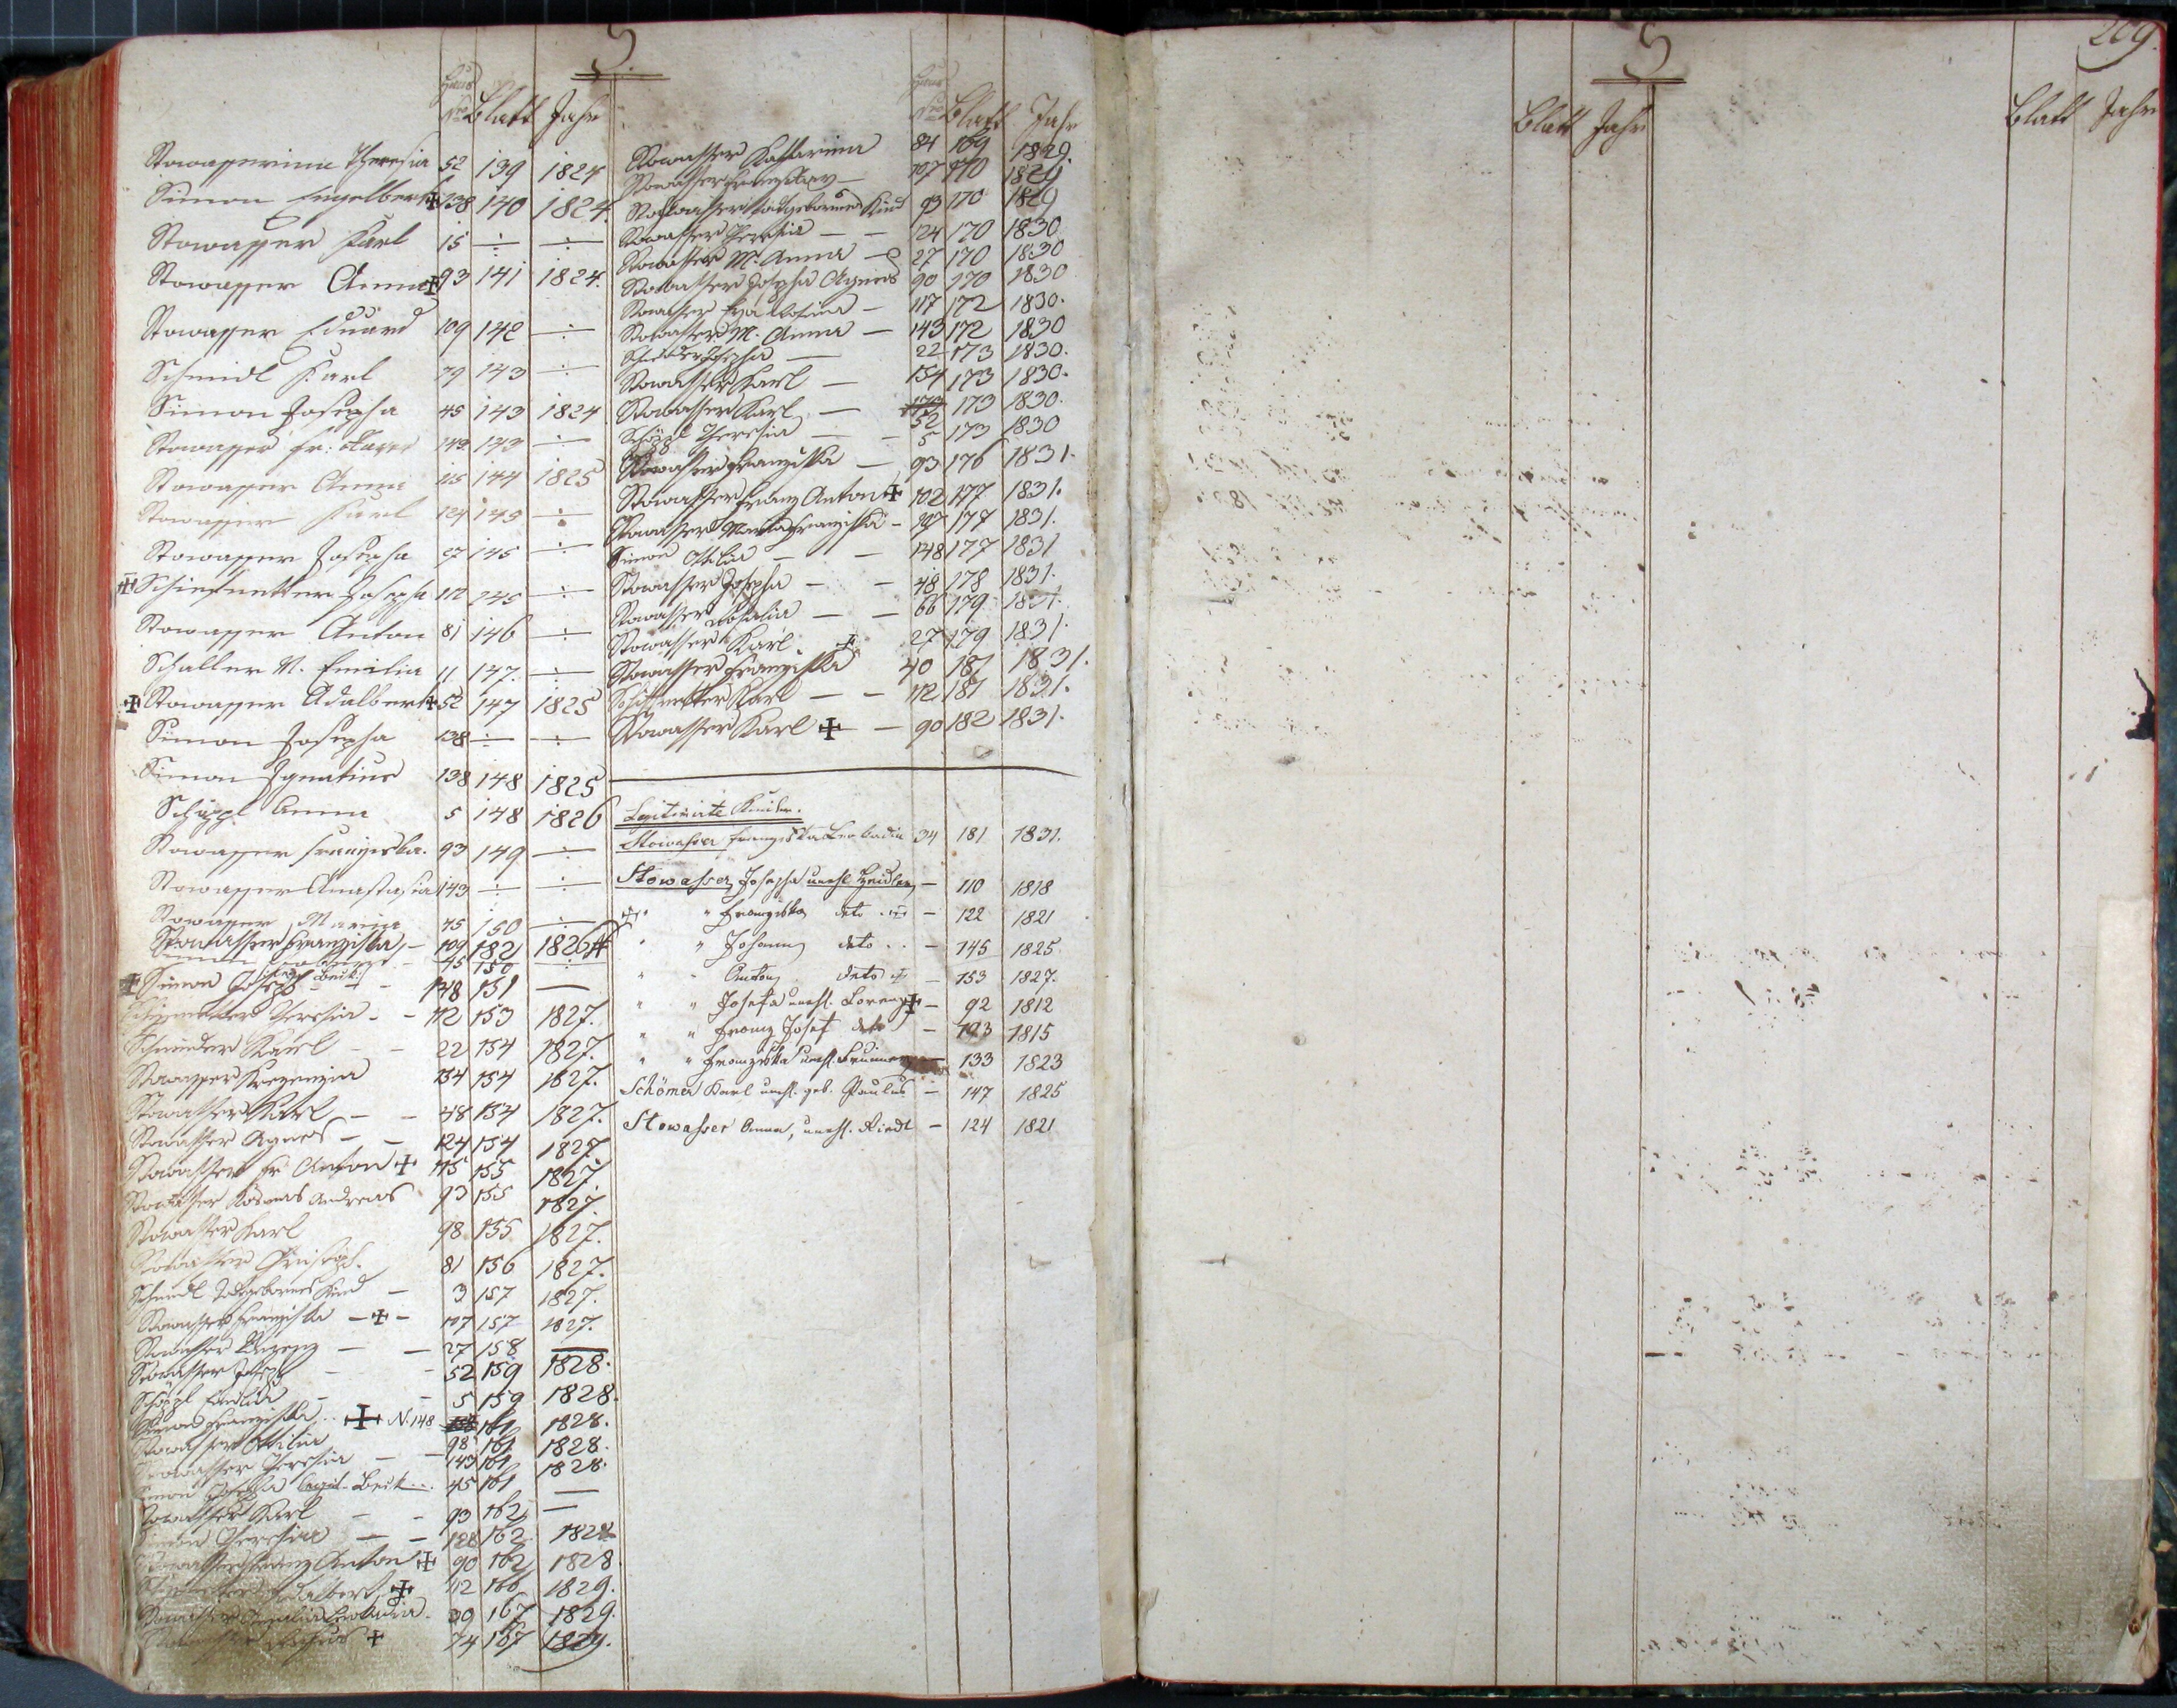 S.
Haus
Nro Blatt Jahr
Stowasserinn Theresia 52 139 1824
Simon Engelbert ✝ 138 140 1824.
Stowasser Karl 15 ÷ ÷
Stowasser Anna ✝ 93 141 1824.
Stowasser Eduard 109 142 ÷
Schmidl Karl 79 143 ÷
Simon Josepha 45 143 1824
Stowasser Fr: Xaver 143 143 ÷
Stowasser Anna 115 144 1825
Stowasser Karl 124 145 ÷
Stowasser Josepha 27 145 ÷
✝ Schiesnetter Josepha 112 245 ÷
Stowasser Anton 81 146 ÷
Schaller M. Emilia 11 147. ÷
✝ Stowasser Adalbert ✝ 52 147 1825
Simon Josepha 138 ÷ ÷
Simon Ignatius 138 148 1825
Schöppl Anna 5 148 1826
Stowasser Franziska. 93 149 ÷
Stowasser Anastasia 143 ÷ ÷
Stowasser Maria 45 150 ÷
Stowasser Franziska, - 109 182 1826 #
Simon 45 150 ÷
✝ Simon Joseph Beck - 148 151 —
Theresia - - 112 153 1827.
Schneider Karl - - 22 154 1827.
Stowasser Kreszenzia 154 154 1827.
Stowasser Karl - - 48 154 1827.
Stowasser Agnes - - 124 154 1827.
Stowasser Fr Anton ✝ 115 155 1827.
Stowasser Kosmas Andreas 93 155 1827.
Stowasser Karl 98 155 1827.
Stowasser Christoph. 81 156 1827.
Schmidl Todtgebornes Kind - 3 157 1827.
Stowasser Franziska - ✝ - 107 157 1827.
Stowasser Vinzenz - - 27 158 —
Stowasser Joseph - - 52 159 1828.
Schöppl Emilia - - 5 159 1828.
Simon Franziska .. ✝ N. 148 161 1828.
Stowasser Ottilia 98 161 1828.
Stowasser Theresia - - 143 161 1828.
Simon Josepha legit. Beck ... 45 161 —
Stowasser Karl - - 93 162 —
Simon Theresia - - 128 162 1828
Stowasser Franz Anton ✝ 90 162 1828.
Adalbert ✝ 112 166 1829.
Stowasser Amalia Leokadia. 39 167 1829.
Stowasser ✝ 74 167 1829.
Haus
Nro Blatt Jahr
Stowasser Katharina 84 169 1829.
Stowasser Franz Xav - 107 170 1829
Stowasser todtgebornes Kind 93 170 1829
Stowasser Theresia - - 124 170 1830
Stowasser M. Anna - 27 170 1830
Stowasser Josepha Agnes 90 170 1830
Stowasser Eva Rosina - 117 172 1830.
Stowasser M. Anna - 143 172 1830
Schneider Josepha - 22 173 1830.
Stowasser Karl - 154 173 1830.
Stowasser Karl - 173 52 173 1830.
Schöppl Theresia - - 5 173 1830
Stowasser Franziska - 93 176 1831.
Stowasser Franz Anton ✝ 102 177 1831.
Stowasser Maria Franziska - 107 177 1831.
Simon Ottilia - - 148 177 1831
Stowasser Josepha - - 48 178 1831.
Stowasser Rosalia - - 66 179 1831.
Stowasser Karl. ✝ 27 179 1831.
Stowasser Franziska 40 181 1831.
Schiesnetter Karl - - 112 181 1831.
Stowasser Karl ✝ - 90 182 1831.
Legitimirte Kinder.
Stowasser Franziska Leokadia 34 181 1831.
Stowasser Josepha unehl. Zeidler, - 110 1818
✝ " " Franziska deto ... - 122 1821
" " Johann deto .. - 145 1825
" " Anton deto ✝ - 153 1827.
" " Josefa unehl. Lorenz ✝ - 92 1812
" " Franz Josef deto - 103 1815
" " Franziska unehl. Brunner - 133 1823
Schömer Karl unehl. geb. Paulus - 147 1825
Stowasser Anna, unehl. Riedl - 124 1821
209.
S
Blatt Jahr
Blatt Jahr